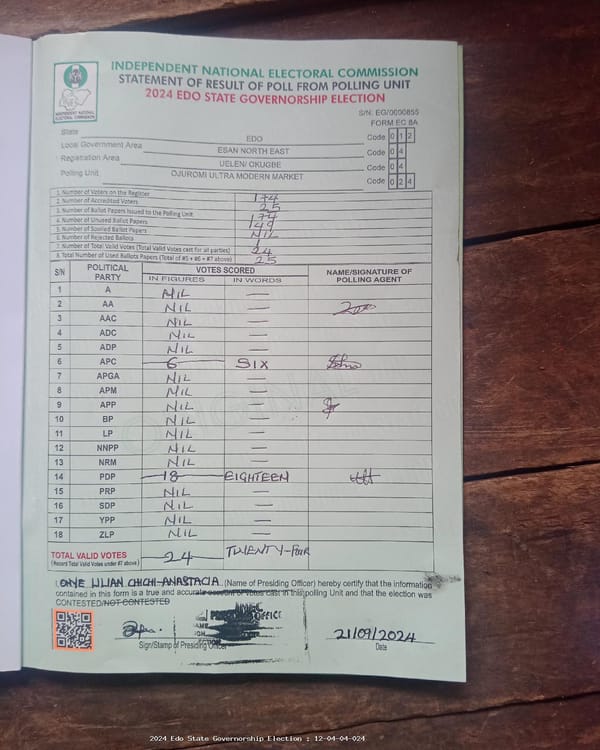 INDEPENDENT NATIONAL ELECTORAL COMMISSION
STATEMENT OF RESULT OF POLL FROM POLLING UNIT
2024 EDO STATE GOVERNORSHIP ELECTION
S/N: EG/0000855
FORM EC 8A
State EDO Code 0 1 2
Local Government Area ESAN NORTH EAST Code 0 4
Registration Area UELEN/ OKUGBE Code 0 4
Polling Unit OJUROMI ULTRA MODERN MARKET Code 0 2 4
1. Number of Voters on the Register 174
2. Number of Accredited Voters 25
3. Number of Ballot Papers Issued to the Polling Unit 174
4. Number of Unused Ballot Papers 149
5. Number of Spoiled Ballot Papers NIL
6. Number of Rejected Ballots
7. Number of Total Valid Votes (Total Valid Votes cast for all parties) 24
8. Total Number of Used Ballots Papers (Total of #5 + #6 + #7 above) 25
S/N POLITICAL PARTY VOTES SCORED NAME/SIGNATURE OF POLLING AGENT
IN FIGURES IN WORDS
1 A NIL —
2 AA NIL —
3 AAC NIL —
4 ADC NIL —
5 ADP NIL —
6 APC 6 SIX
7 APGA NIL —
8 APM NIL —
9 APP NIL —
10 BP NIL —
11 LP NIL —
12 NNPP NIL —
13 NRM NIL —
14 PDP 18 EIGHTEEN
15 PRP NIL —
16 SDP NIL —
17 YPP NIL —
18 ZLP NIL —
TOTAL VALID VOTES 24 TWENTY-FOUR
(Record Total Valid Votes under #7 above)
I, LILIAN CHICHI-ANASTACIA (Name of Presiding Officer) hereby certify that the information
contained in this form is a true and accurate account of votes cast in this polling Unit and that the election was
CONTESTED/NOT CONTESTED
Sign/Stamp of Presiding Officer
21/09/2024
Date
2024 Edo State Governorship Election : 12-04-04-024